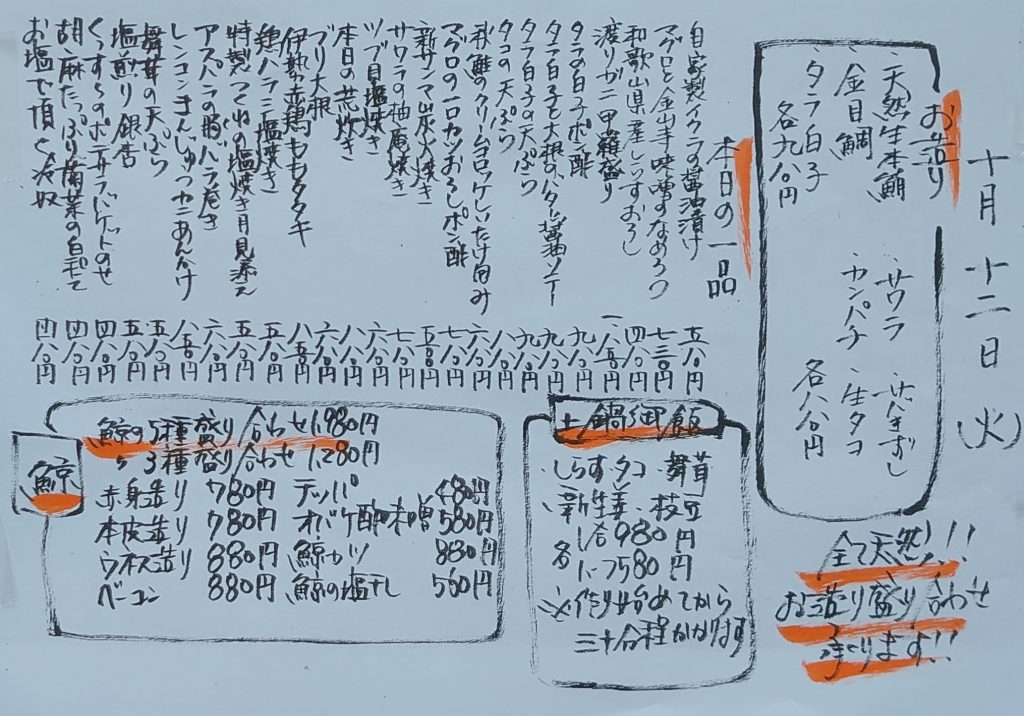 十月十二日(火)
お造り
・天然生本鮪
・金目鯛
・タラ白子
各九八〇円
・サワラ
・カンパチ
・生タコ
各八八〇円
全て天然!!
お造り盛り合わせ
承ります!!
本日の一品
自家製イクラの醤油漬け 五八〇円
マグロと金山寺味噌のなめろう 七三〇円
和歌山県産しらすおろし 四八〇円
渡りガニ甲羅盛り 一、八五〇円
タラの白子ポン酢 九八〇円
タラ白子と大根のバター醤油ソテー 九八〇円
タラ白子の天ぷら 九八〇円
タコの天ぷら
秋鮭のクリームコロッケしいたけ包み
マグロの一口カツおろしポン酢
新サンマ炭火焼き
サワラの柚庵焼き
ツブ貝塩焼き
本日の荒炊き
ブリ大根
伊勢赤鶏ももタタキ
鶏ハラミ塩焼き
特製つくねの塩焼き月見添え
アスパラの豚バラ巻き
レンコンまんじゅうカニあんかけ
舞茸の天ぷら 五八〇円
塩煎り銀杏 五八〇円
くんずらのポテサラバゲットのせ 四八〇円
胡麻たっぷり菊菜の白和え 四八〇円
お塩で頂く冷奴 四八〇円
土鍋御飯
・しらす・タコ・舞茸
・新生姜・枝豆
各 1合980円
1.5 1,580円
※炊き始めてから
三十分程かかります
鯨
鯨の5種盛り合わせ1,980円
〃3種盛り合わせ1,280円
赤身造り 780円 テッパ 480円
本皮造り 780円 オバケ酢味噌 580円
ウネス造り 880円 鯨カツ 880円
ベーコン 880円 鯨の塩干し 560円